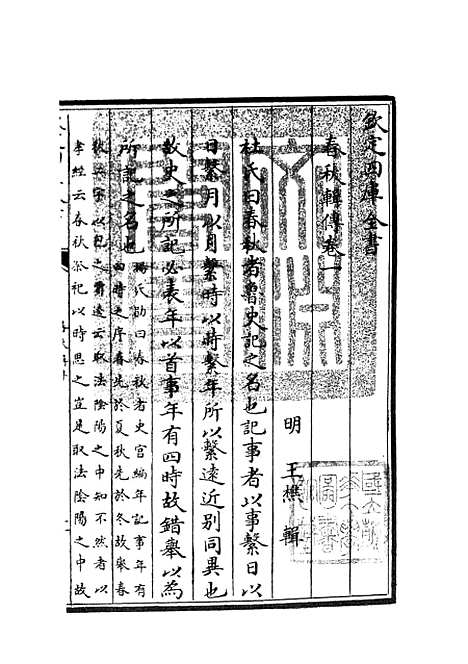 欽定四庫全書
春秋輯傳卷一
明 王樵 輯
杜氏曰春秋者魯史記之名也記事者以事繫日以
日繫月以月繫時以時繫年所以繫遠近别同異也
故史之所記必表年以首事年有四時故錯舉以為
所記之名也
楊氏勛曰春秋者史官編年記事年有
四時之序春先於夏秋先於冬故舉春
秋二字以包之賈逵云取法陰陽之中知不然者以
孝經云春秋祭祀以時思之豈是取法陰陽之中故